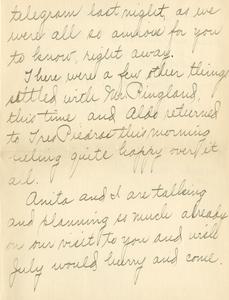 telegram last night, as we
were all so anxious for you
to know, right away.
There were a few other things
settled with Mr. Ringland,
this time, and Aldo returned
to Tres Piedras this morning
feeling quite happy over it
all.
Anita and I are talking
and planning so much already
on our visit to you and wish
July would hurry and come.